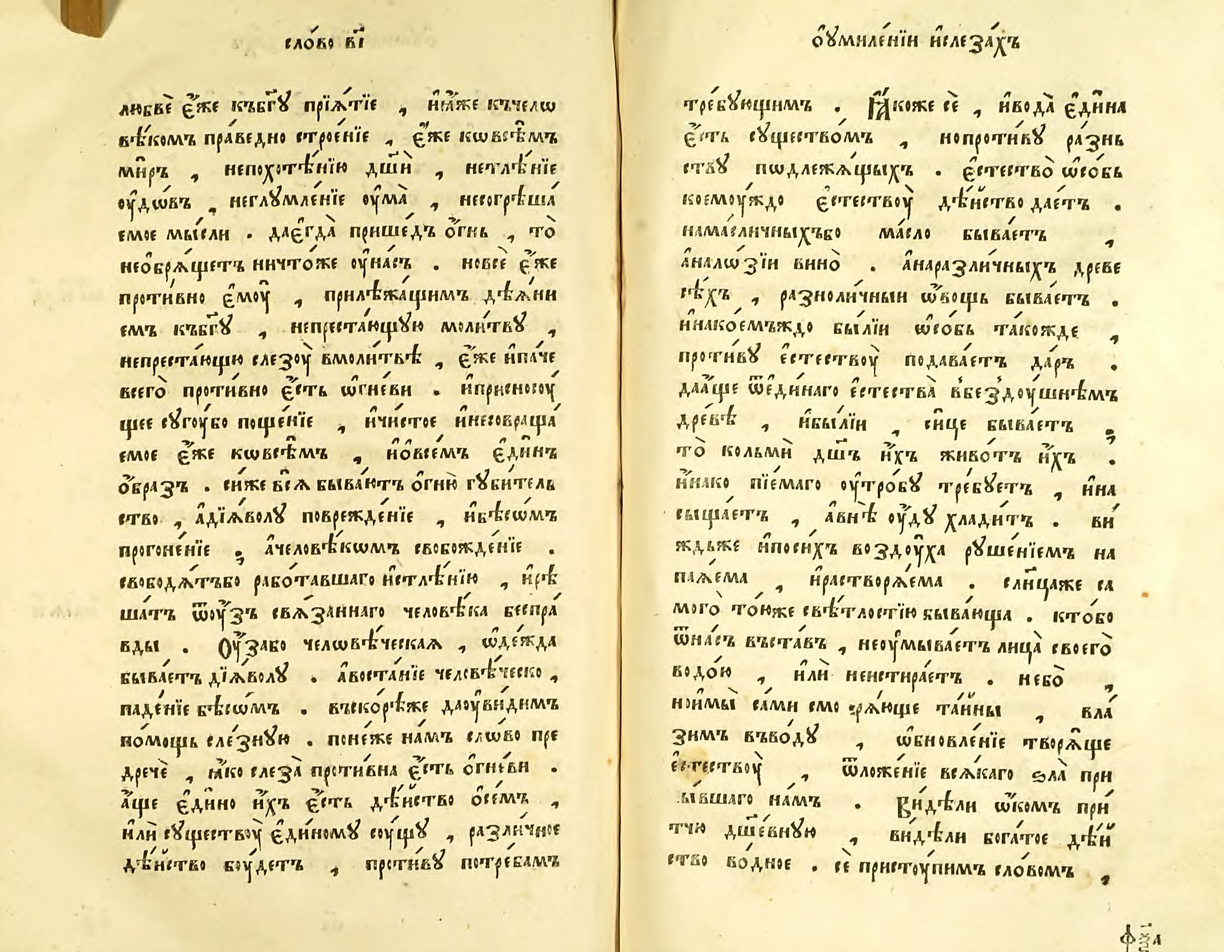 сло́во в҃і
любвѐ є҆́же къбг҃ꙋ прїѧ́тїе , и҆ꙗ҆́же къчелѡ
вѣ́комъ пра́ведно строе́нїе , є҆́же кѡвсѣ́мъ
ми́ръ , непохотѣ́нїю дш҃и̑ , нетлѣ́нїе
оу҆́дѡвъ , неглꙋмле́нїе оу҆ма̀ , несогрѣша́
емое мы́сли . даєгда̀ прише́дъ ѻ҆́гнь , то̀
неѡ҆брѧ́щетъ ничто́же оу҆на́съ . но́всѐ є҆́же
проти́вно є҆моу̀ , прилѣжа́щимъ дѣѧ́ни
емъ къбг҃ꙋ , непреста́ющꙋю моли́твꙋ ,
непреста́ющю слезоу̀ вмоли́твѣ , є҆́же и҆па́че
всего̀ проти́вно є҆́сть ѡ҆гне́ви . и҆присносоу́
щее сꙋгоу́бо поще́нїе , и҆чи́стое и҆несовраща́
емое є҆́же кѡвсѣ́мъ , и҆ѡ҆всем́ъ є҆ди́нъ
ѻ҆́бразъ . сиже всѧ̑ быва́ютъ ѻ҆гню̀ гꙋби́тель
ство , а҆дїѧ́волꙋ поврежде́нїе , и҆бѣсѡ́мъ
прогоне́нїе ; а҆человѣ́кѡмъ свобожде́нїе .
свободѧ́тъбо рабо́тавшаго и҆стлѣ́нїю , и҆рѣ
ша́тъ ѿоу҆́зъ свѧ́заннаго человѣ́ка беспра́
вды . Оу҆́забо челѡвѣ́ческаѧ , ѡ҆де́жда
быва́етъ дїѧ́волꙋ . а҆воста́нїе человѣ́ческо ,
паде́нїе бѣсѡ́мъ . въско́рѣже даоу҆ви́димъ
по́мощь сле́знꙋю . поне́же на́мъ сло́во пре
дречѐ , ꙗ҆́ко слеза̀ проти́вна є҆́сть ѻ҆гне́ви .
а҆́ще є҆ди́но и҆́хъ є҆́сть дѣ́йство ѻ҆се́мъ ,
и҆лѝ сꙋществоу̀ є҆ди́номꙋ соу́щꙋ , разли́чное
дѣ́йство боу́детъ , проти́вꙋ потре́бамъ
ѻ҆ꙋмиле́нїи и҆слеза́хъ
тре́бꙋющимъ . Ꙗ҆́коже сѐ , и҆вода̀ є҆ди́на
є҆́сть сꙋщество́мъ , нопроти́вꙋ ра́знь
ствꙋ пѡдлежѧ́щыхъ . є҆стество̀ ѡ҆со́бь
коемоу́ждо є҆стествоу̀ дѣ́йство дае́тъ .
нама́сличныхъбо ма́сло быва́етъ ,
а҆налѡзі́и вино̀ . а҆наразли́чныхъ древе
сѣ́хъ , разноли́чныи ѡ҆́вощь быва́етъ .
и҆накое́мъждо бы́лїи ѡ҆со́бь та́кожде ,
проти́вꙋ є҆стествоу̀ подава́етъ да́ръ .
даа҆́ще ѿеди́наго є҆стества̀ вбездоу́шнѣмъ
дре́вѣ , и҆бы́лїи , си́це быва́етъ ;
то̀ кольмѝ дш҃ъ и҆́хъ живо́тъ и҆́хъ .
и҆́нако пїе́маго оу҆тро́бꙋ тре́бꙋетъ , и҆на
сыща́етъ , а҆внѣ̀ оу҆́дꙋ хлади́тъ . ви́
ждьже и҆поси́хъ воздоу́ха рꙋше́нїемъ на
паѧ́ема , и҆растворѧ́ема . сл҃нцаже са
мого̀ то́юже свѣ́тлостїю быва́юща . кто́бо
ѿна́съ въста́въ , неоу҆мыва́етъ лица̀ своегѡ̀
водо́ю , и҆лѝ неистира́етъ . не́бо ,
но́имы̀ са́ми смо рѧ́юще та́йны , вла́
зимъ въво́дꙋ , ѡ҆бновле́нїе творѧ́ще
є҆стествоу̀ , ѿложе́нїе всѧ́каго ѕла̀ при
ы́вшаго на́мъ . Ви́дѣли ѡ҆́комъ при́
тчю дш҃е́внꙋю , ви́дѣли бога́тое дѣ́й
ство во́дное . сѐ пристоу́пимъ сло́вомъ ,